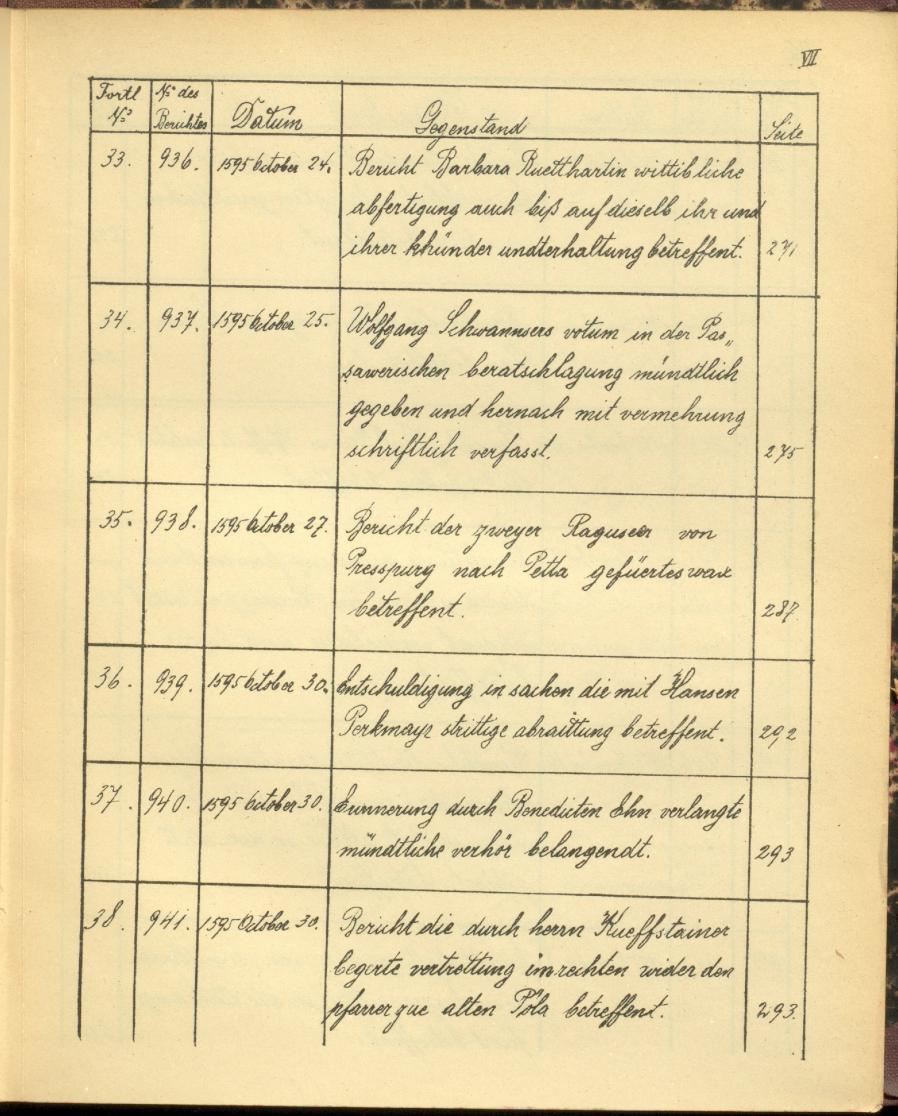 VII
Fortl No. No. des Berichtes Datum Gegenstand Seite
33. 936. 1595 October 24. Bericht Barbara Ruetthartin wittibliche
abfertigung auch biß auf dieselb ihr und
ihrer khünder undterhaltung betreffent. 271
34. 937. 1595 October 25. Wolfgang Schwannsers votum in der Pas„
sawerischen beratschlagung mündtlich
gegeben und hernach mit vermehrung
schriftlich verfasst. 275
35. 938. 1595 October 27. Bericht der zweyer Raguseer von
Presspurg nach Petta gefüertes wax
betreffent. 287
36. 939. 1595 October 30. Entschuldigung in sachen die mit Hansen
Perkmayr strittige abraittung betreffent. 292
37. 940. 1595 October 30. Erinnerung durch Benedicten Ehn verlangte
mündtliche verhör belangendt. 293
38. 941. 1595 October 30. Bericht die durch herrn Kueffstainer
begerte vertrettung im rechten wider den
pfarrer zue alten Pöla betreffent. 293.